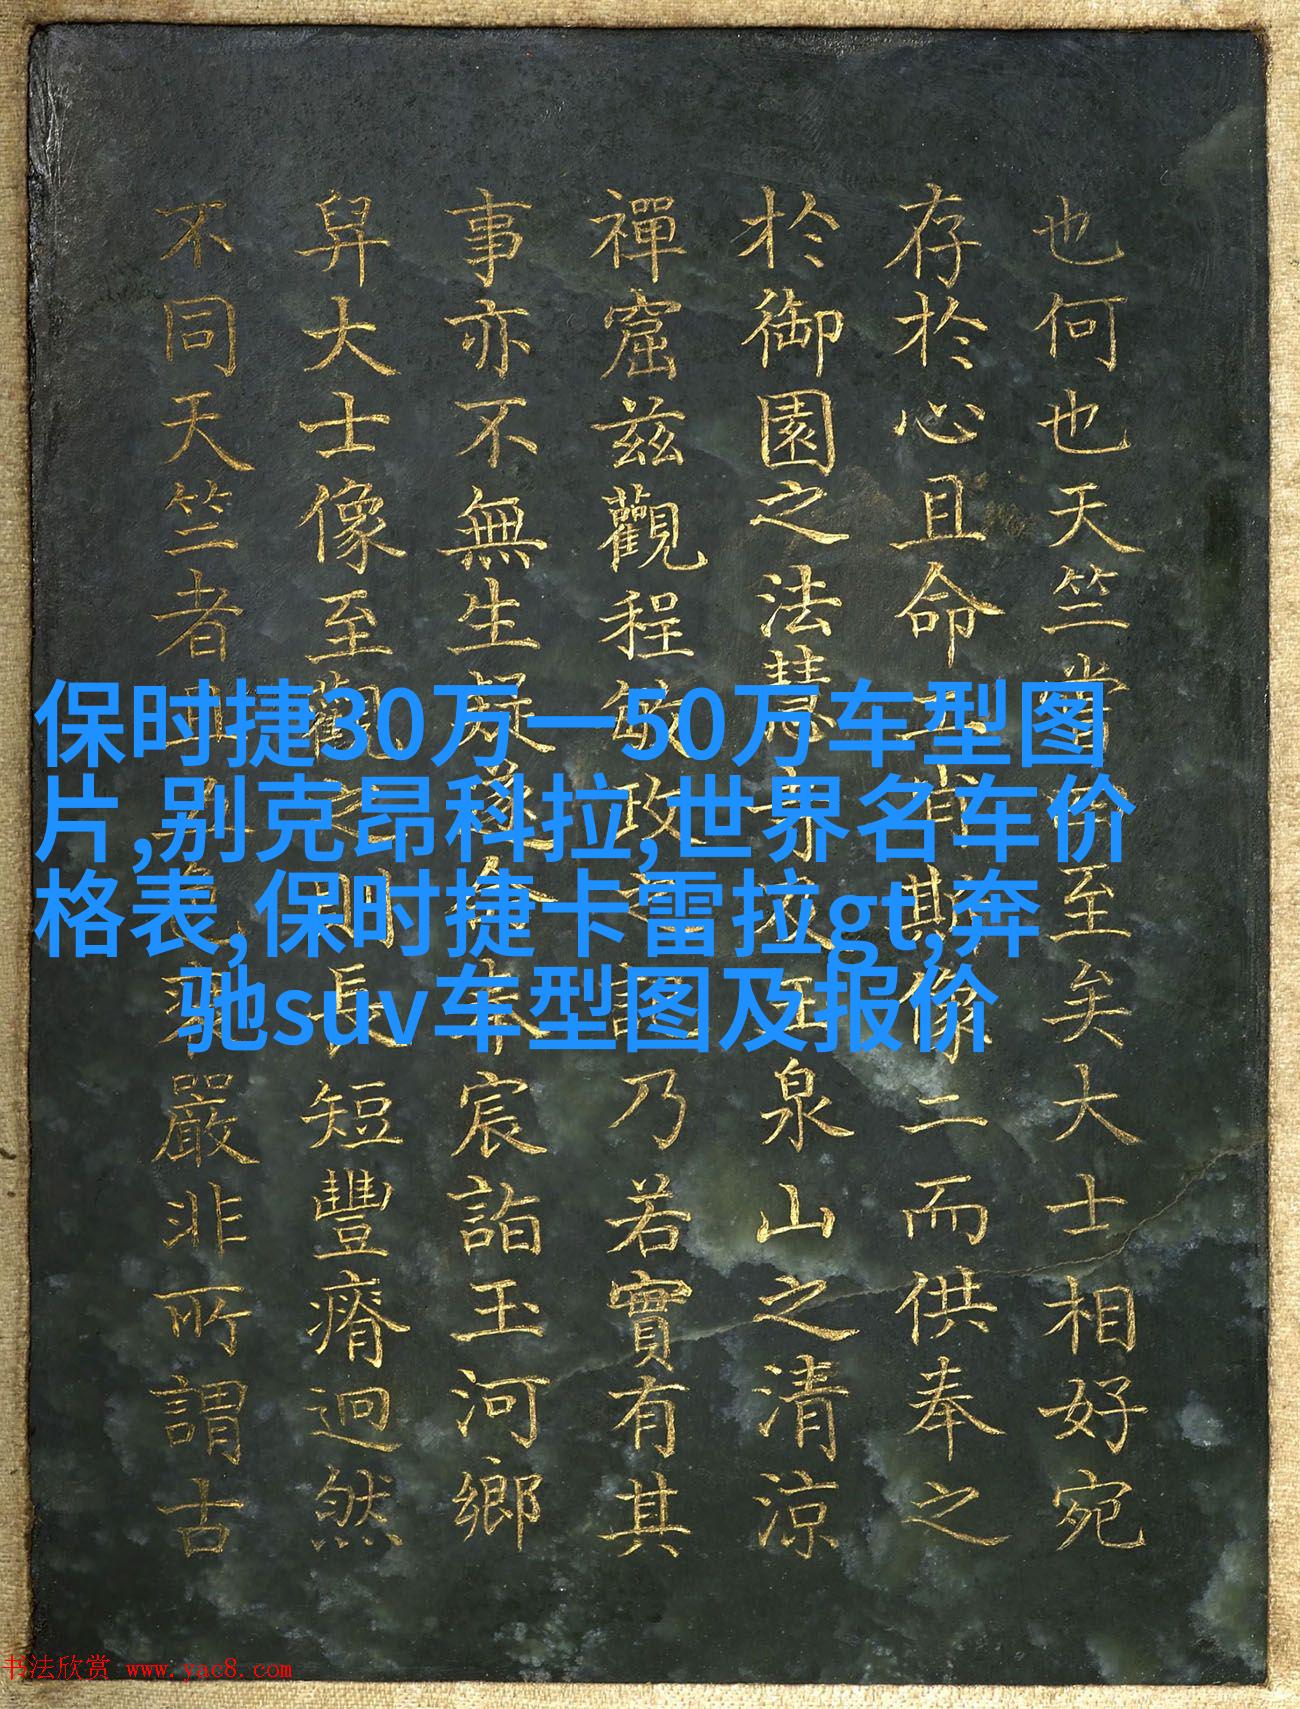 也何也天竺當至矣大士相好宛
存於心且命工肖斯像二而供奉之
於御園之法慧寺及玉泉山之清涼
禪窟兹觀程敏政之記乃若實有其
事亦不無生疑遂宸詣玉河鄉
舁大士像至觀之則長短豐瘠迥然
不同天竺者別嚴非所謂古
保时捷30万一50万车型图
片,别克昂科拉,世界名车价
格表,保时捷卡雷拉gt,奔
驰suv车型图及报价
书法欣赏 www.yac8.com